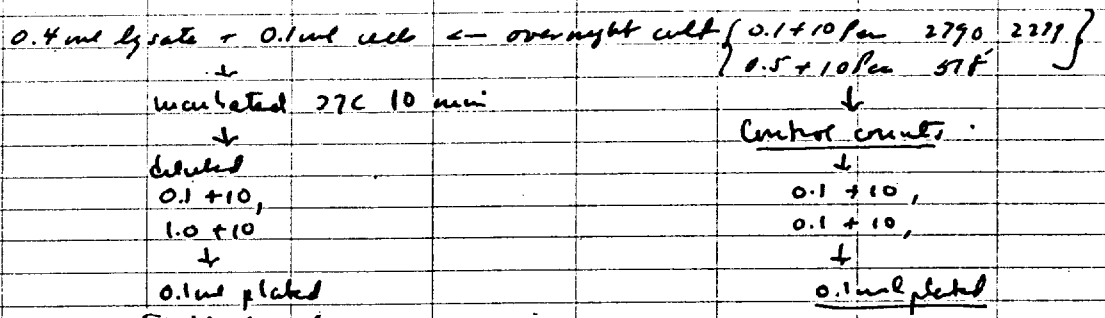 0.4 ml lysate + 0.1 ml cells ← overnight cult { 0.1 + 10 Pen 2790 2279 }
0.5 + 10 Pen 518
↓
incubated 37C 10 min
↓
diluted
0.1 + 10,
1.0 + 10
↓
0.1 ml plated
↓
Control counts.
↓
0.1 + 10,
0.1 + 10,
↓
0.1 ml plated